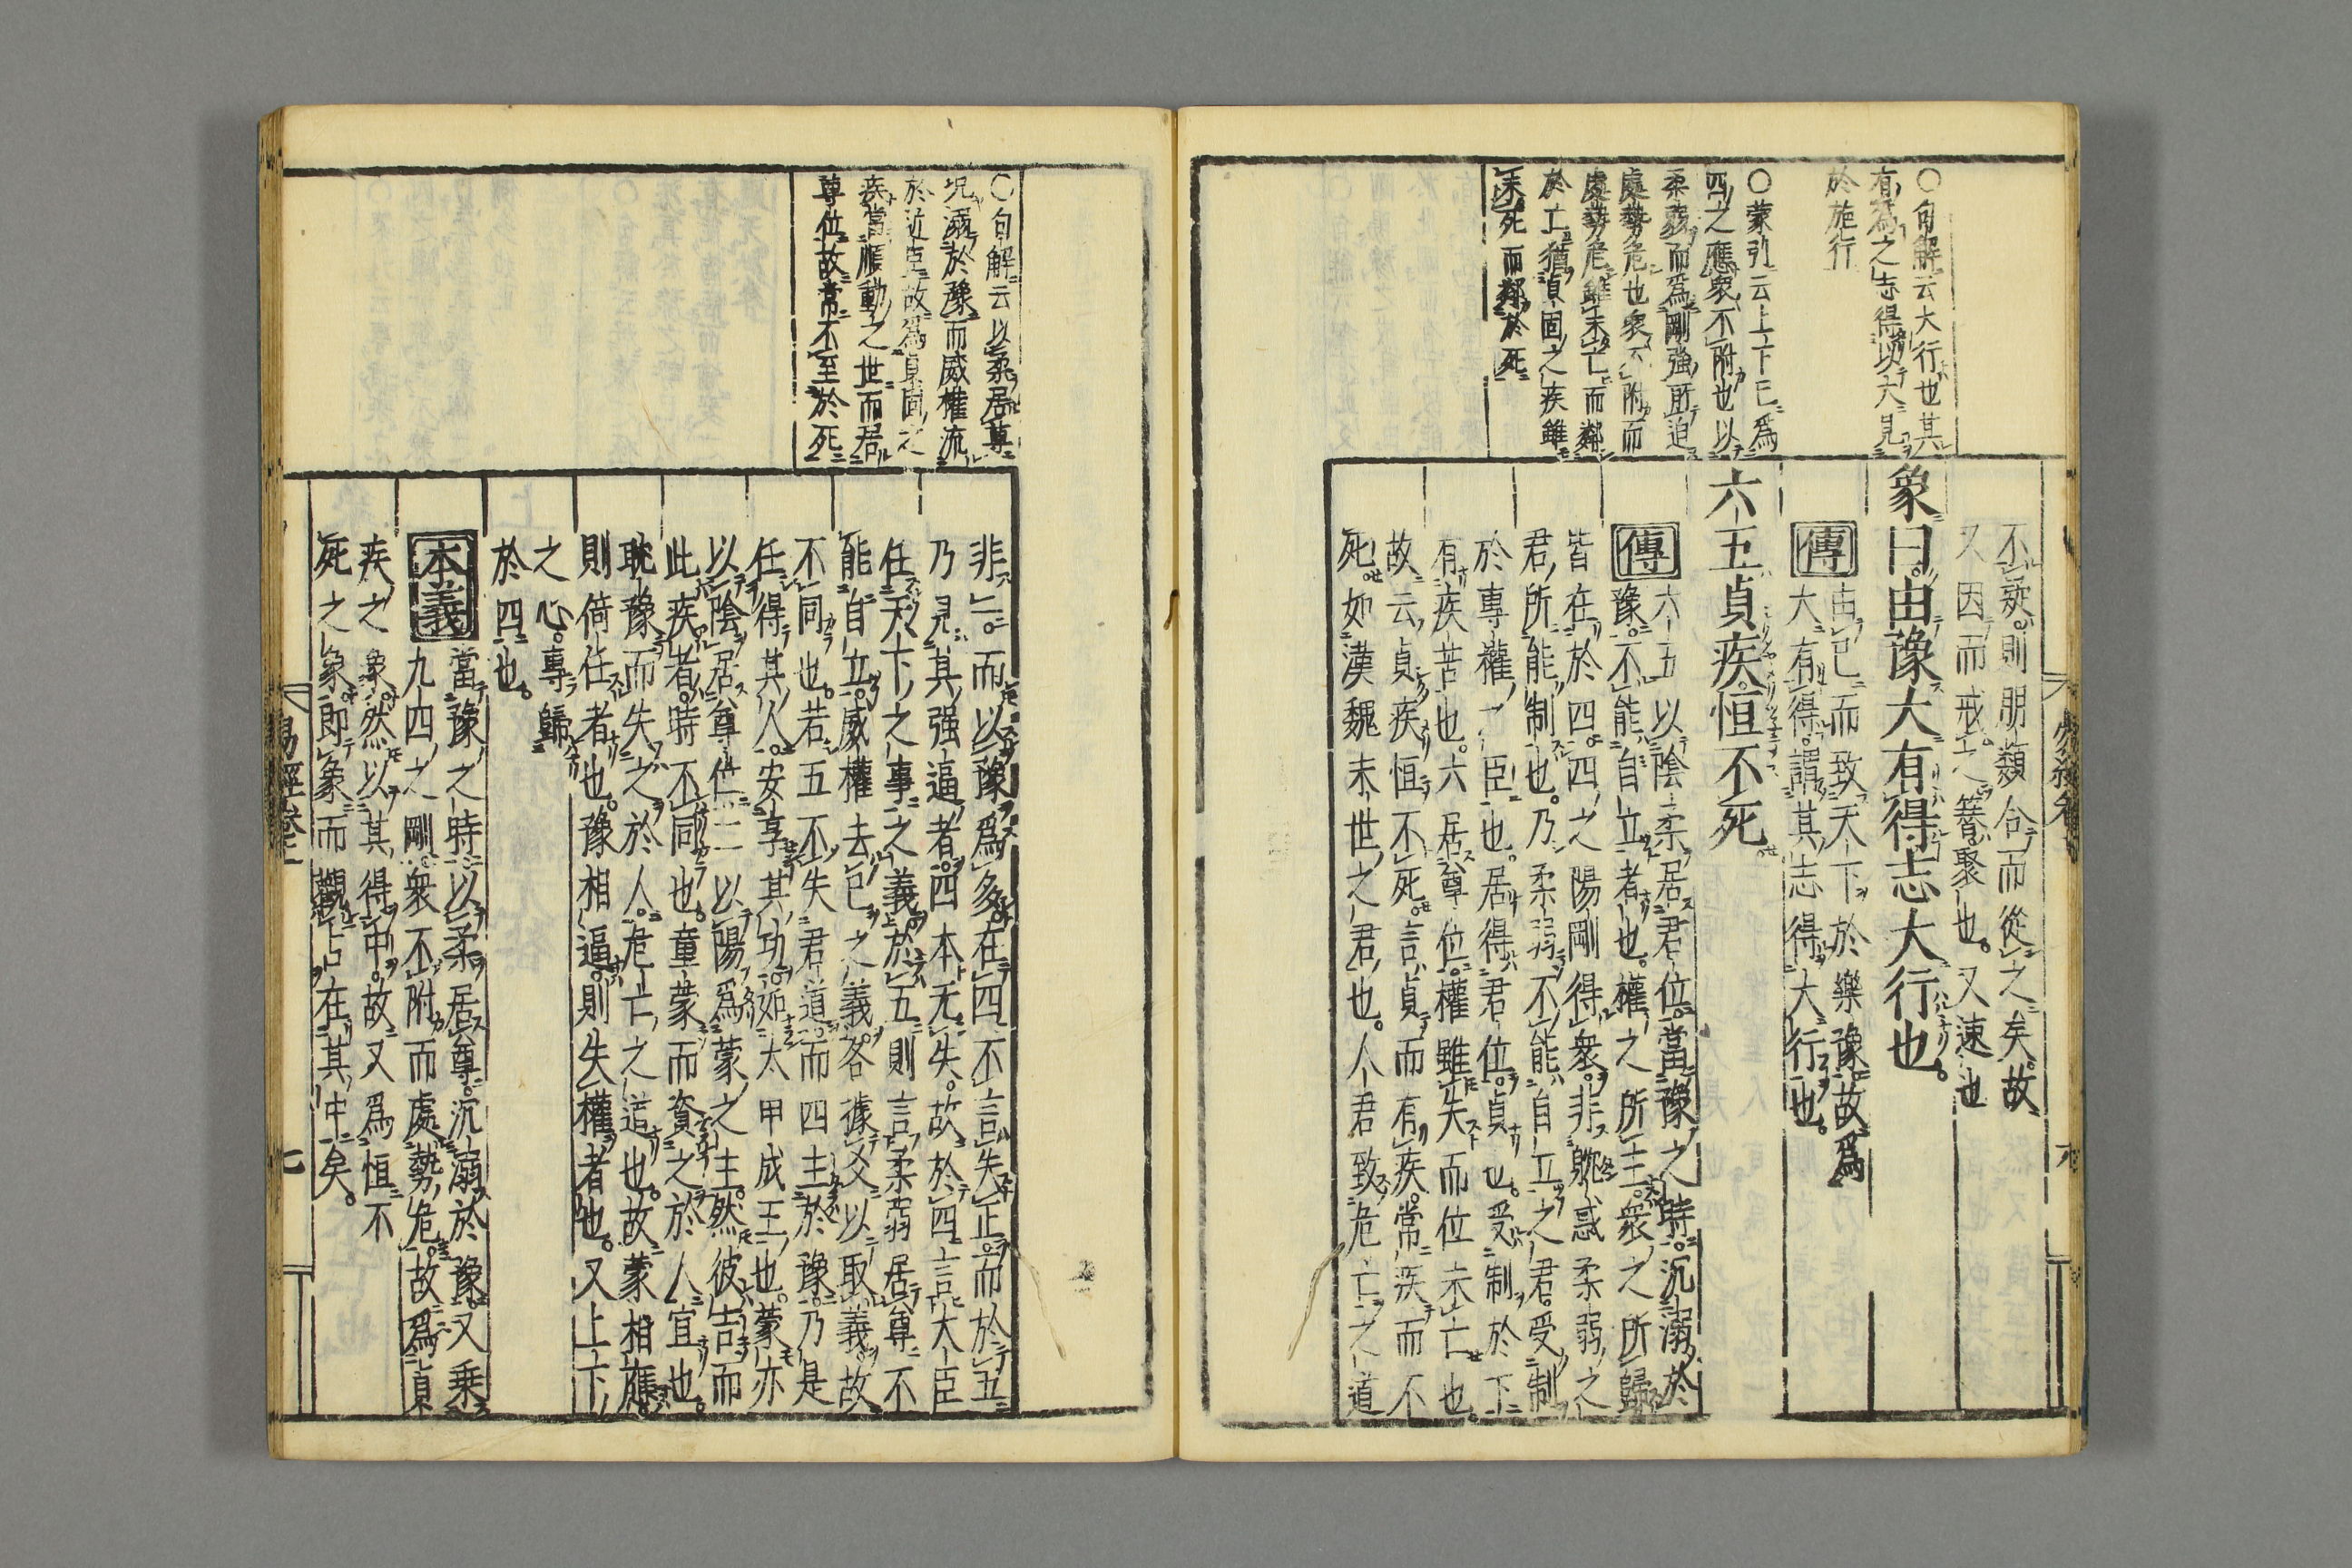 ○句解云大行也其
有爲之志得以大見
於施行
○蒙引云上下已爲
四之應衆不附也以
柔弱而爲剛強所迫
處勢危也衆不附而
處勢危雖未亡而鄰
於亡猶貞固之疾雖
未死而鄰於死
不疑則朋類合而從之矣故
又因而戒之簪聚也又速也
象曰由豫大有得志大行也
傳 由已而致天下於樂豫故爲
大有得謂其志得大行也
六五貞疾恒不死
傳 六五以陰柔居君位當豫之時沉溺於
豫不能自立者也權之所主衆之所歸
皆在於四四之陽剛得衆非耽惑柔弱之
君所能制也乃柔弱不能自立之君受制
於專權之臣也居得君位貞也受制於下
有疾苦也六居尊位權雖失而位未亡也
故云貞疾恒不死言貞而有疾常疾而不
死如漢魏末世之君也人君致危亡之道
○句解云以柔居尊
況溺於豫而威權流
於近臣故爲貞固之
疾當順動之世而居
尊位故常不至於死
非一而以豫爲多在四不言失正而於五
乃見其强逼者四本无失故於四言大臣
任天下之事之義於五則言柔弱居尊不
能自立威權去已之義各據爻以取義故
不同也若五不失君道而四主於豫乃是
任得其人安享其功如太甲成王也蒙亦
以陰居尊位二以陽爲蒙之主然彼吉而
此疾者時不同也童蒙而資之於人宜也
耽豫而失之於人危亡之道也故蒙相應
則倚任者也豫相逼則失權者也又上下
之心專歸
於四也
本義 當豫之時以柔居尊沉溺於豫又乗
九四之剛衆不附而處勢危故爲貞
疾之象然以其得中故又爲恒不
死之象即象而觀占在其中矣
易經卷二
七